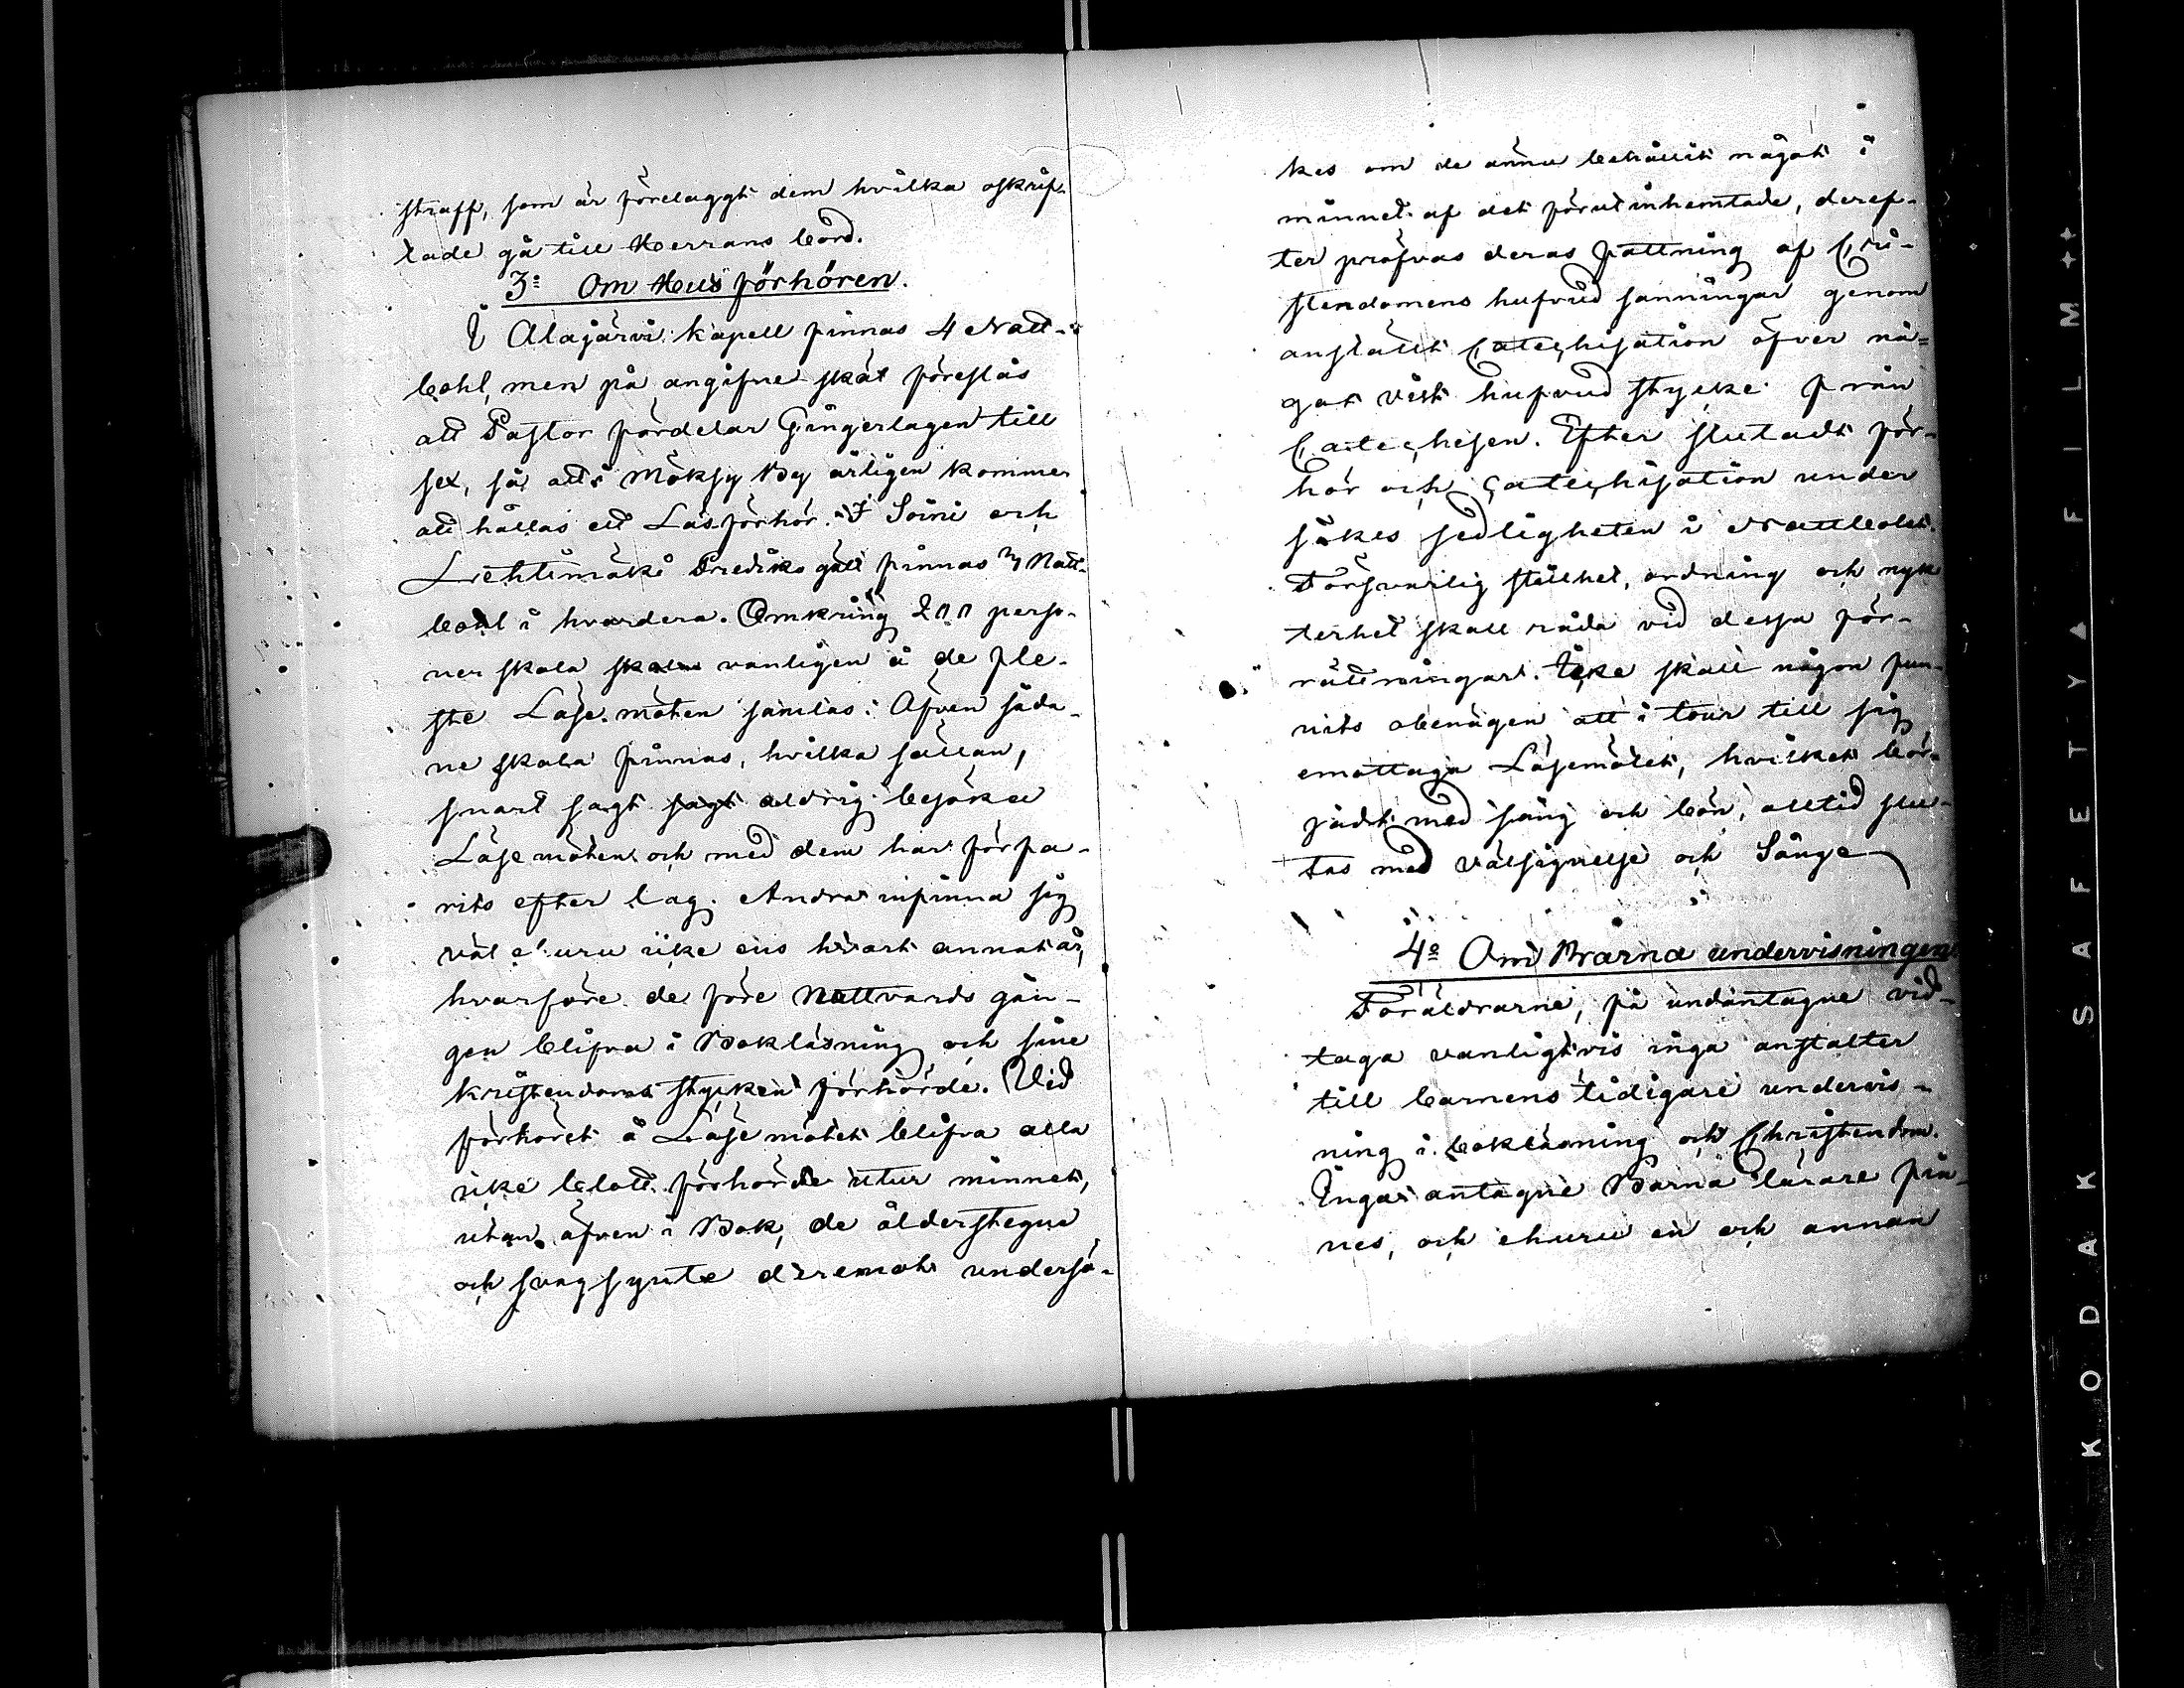 straff, som är förelaggt dem hvilka oskrif-
tade gå till Herrans bord.
3:o Om Husförhören.
I Alajärvi Kapell finnas 4 Natt-
bohl, men på angifne skäl föreslås
att Pastor fördelar Gingerlagen till
sex, så att i Möksy By årligen kommer
att hållas ett Läsförhör. I Soini och
Lehtimäki Predikogäll finnas 3 Natt-
bohl i hvardera. Omkring 200 perso-
ner skola skola vanligen å de fle-
ste Läsemöten samlas. Äfven såda-
ne skola finnas, hvilka sällan,
snart sagt sagt aldrig besöka
Läsemöten och med dem har förfa-
rits efter lag. Andra infinna sig
väl ehuru icke ens hvart annat år,
hvarföre de före Nattvards gån-
gen blifva i Bokläsning och sine
kristendoms stycken förhörde. Vid
förhöret å Läsemötet blifva alla
icke blott förhörde utur minnet,
utan äfven i Bok, de ålderstegne
och svagsynte deremot undersö-
kes om de ännu behållit något i
minnet af det förut inhemtade, deref-
ter pröfvas deras fattning af Cri-
stendomens hufvud sanningar genom
anstäldt Catechisation öfver nå-
got visst hufvud stycke från
Catechesen. Efter slutadt för-
hör och Catechisation under
sökes sedligheten i Nattbolet.
Försvarlig stillhet, ordning och nyk
terhet skall råda vid dessa för-
rättningar. Icke skall någon fun-
nits obenägen att i tour till sig
emottaga Läsemötet, hvilket bör-
jadt med sång och bön, alltid slu-
tas med välsignelse och Sånge
4:o Om Barna undervisningen
Föräldrarne, få undantagne vid-
taga vanligtvis inga anstalter
till barnens tidigare undervis-
ning i bokläsning och Christendom.
Inga antagne Barna lärare fin-
nes, och ehuru en och annan
KODAK SAFETY FILM